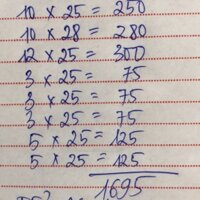 10 × 25 = 250
10 × 28 = 280
12 × 25 = 300
3 × 25 = 75
3 × 25 = 75
3 × 25 = 75
5 × 25 = 125
5 × 25 = 125
1695